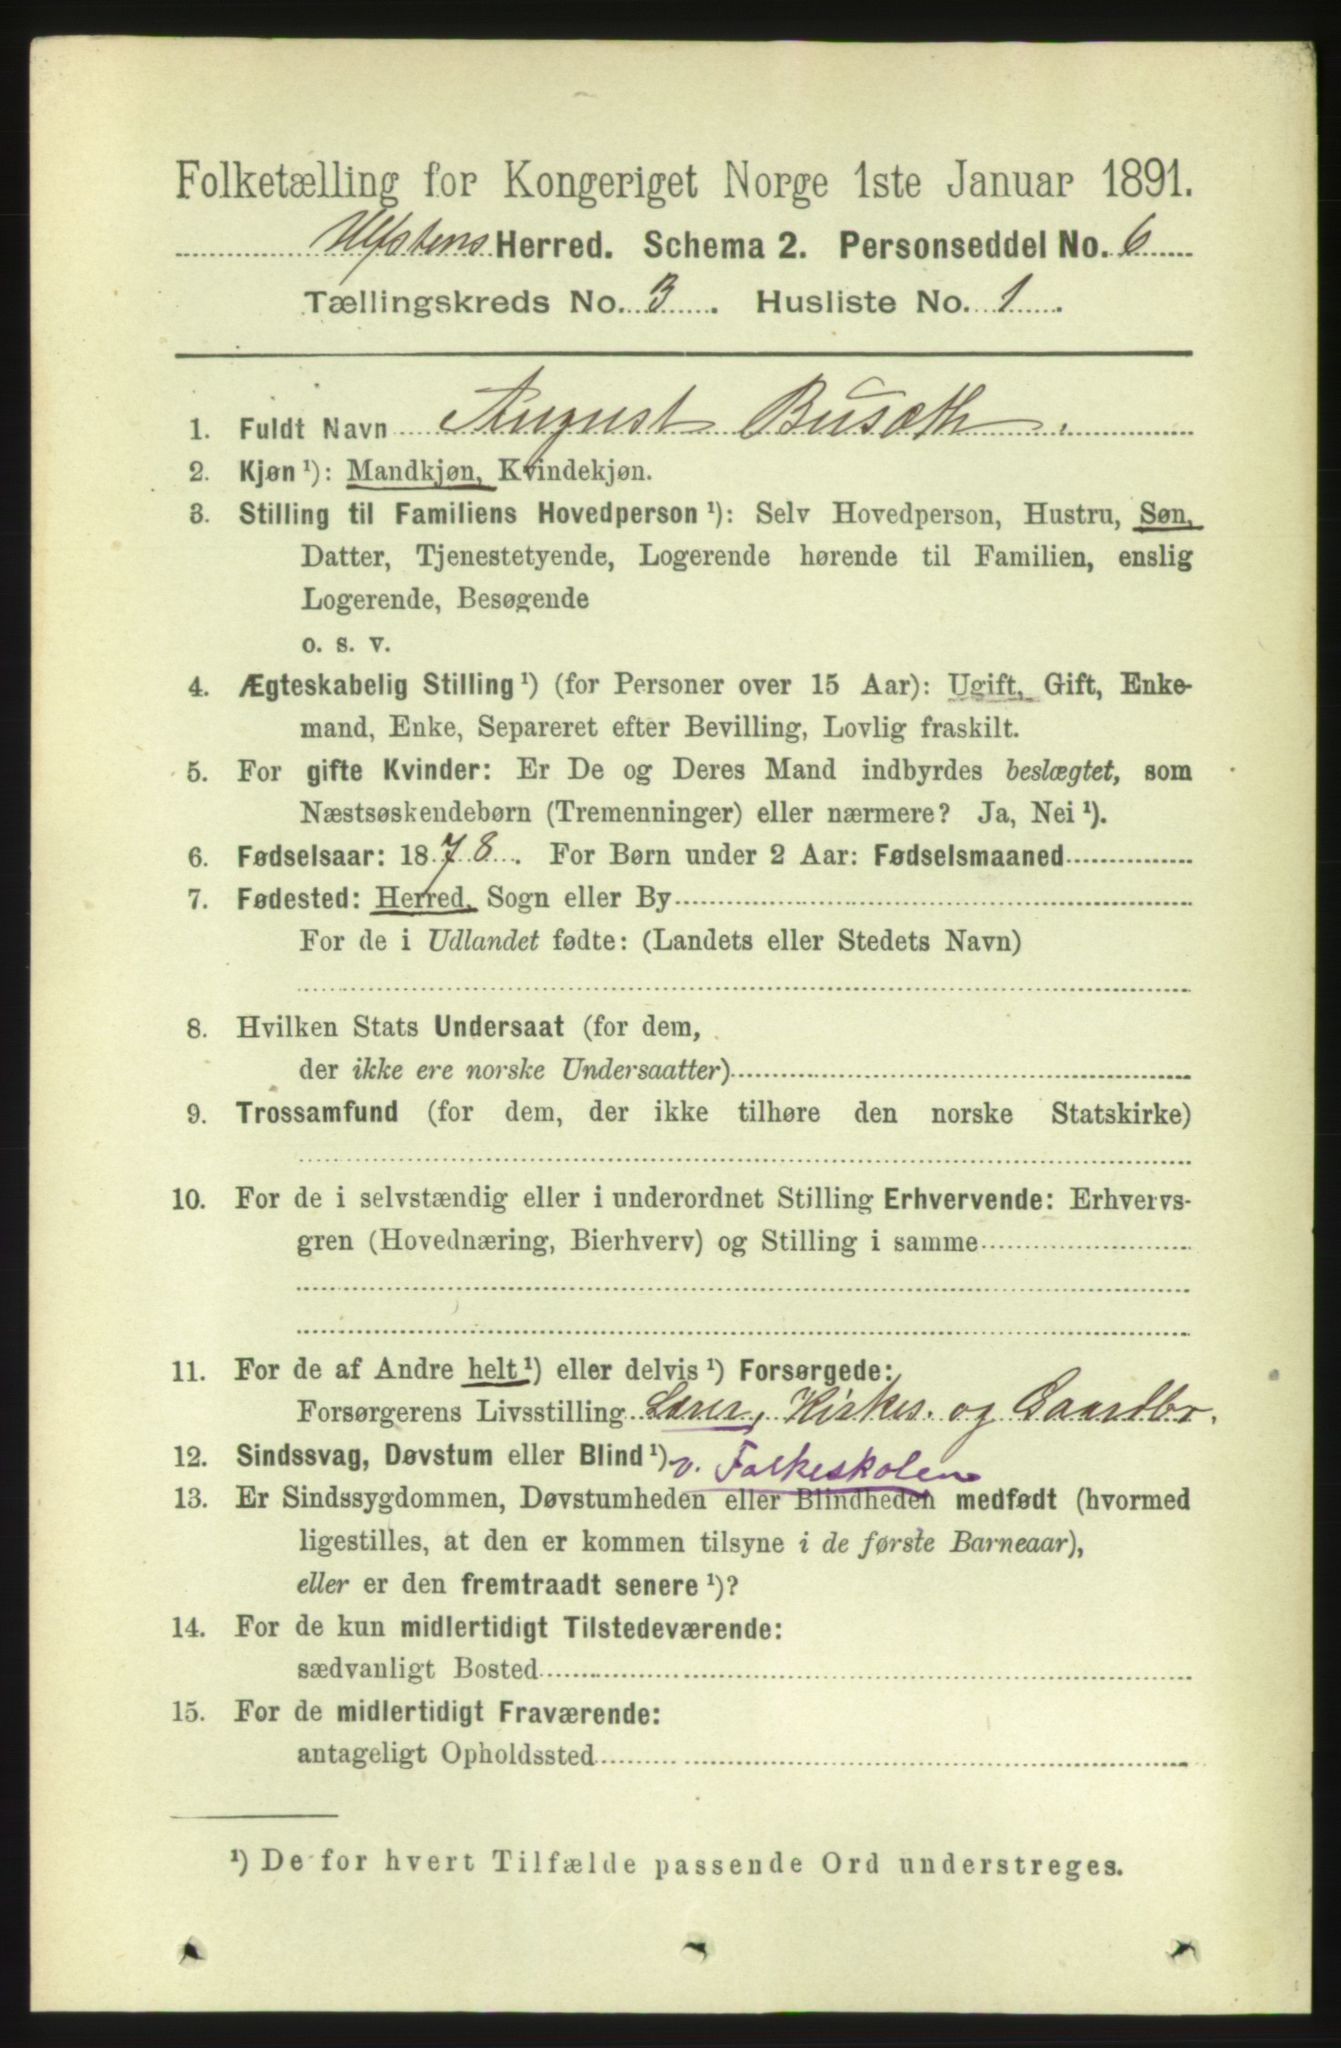 Folketælling for Kongeriget Norge 1ste Januar 1891.
Ulfstens Herred. Schema 2. Personseddel No. 6
Tællingskreds No. 3. Husliste No. 1.
1. Fuldt Navn August Busæth.
2. Kjøn ¹): Mandkjøn, Kvindekjøn.
3. Stilling til Familiens Hovedperson ¹): Selv Hovedperson, Hustru, Søn,
Datter, Tjenestetyende, Logerende hørende til Familien, enslig
Logerende, Besøgende
o. s. v.
4. Ægteskabelig Stilling ¹) (for Personer over 15 Aar): Ugift, Gift, Enke-
mand, Enke, Separeret efter Bevilling, Lovlig fraskilt.
5. For gifte Kvinder: Er De og Deres Mand indbyrdes beslægtet, som
Næstsøskendebørn (Tremenninger) eller nærmere? Ja, Nei ¹).
6. Fødselsaar: 1878. For Børn under 2 Aar: Fødselsmaaned
7. Fødested: Herred, Sogn eller By
For de i Udlandet fødte: (Landets eller Stedets Navn)
8. Hvilken Stats Undersaat (for dem,
der ikke ere norske Undersaatter)
9. Trossamfund (for dem, der ikke tilhøre den norske Statskirke)
10. For de i selvstændig eller i underordnet Stilling Erhvervende: Erhvervs-
gren (Hovednæring, Bierhverv) og Stilling i samme
11. For de af Andre helt ¹) eller delvis ¹) Forsørgede:
Forsørgerens Livsstilling Lærer, Kirkes. og Gaardbr.
12. Sindssvag, Døvstum eller Blind ¹). v. Folkeskolen
13. Er Sindssygdommen, Døvstumheden eller Blindheden medfødt (hvormed
ligestilles, at den er kommen tilsyne i de første Barneaar),
eller er den fremtraadt senere ¹)?
14. For de kun midlertidigt Tilstedeværende:
sædvanligt Bosted
15. For de midlertidigt Fraværende:
antageligt Opholdssted
¹) De for hvert Tilfælde passende Ord understreges.